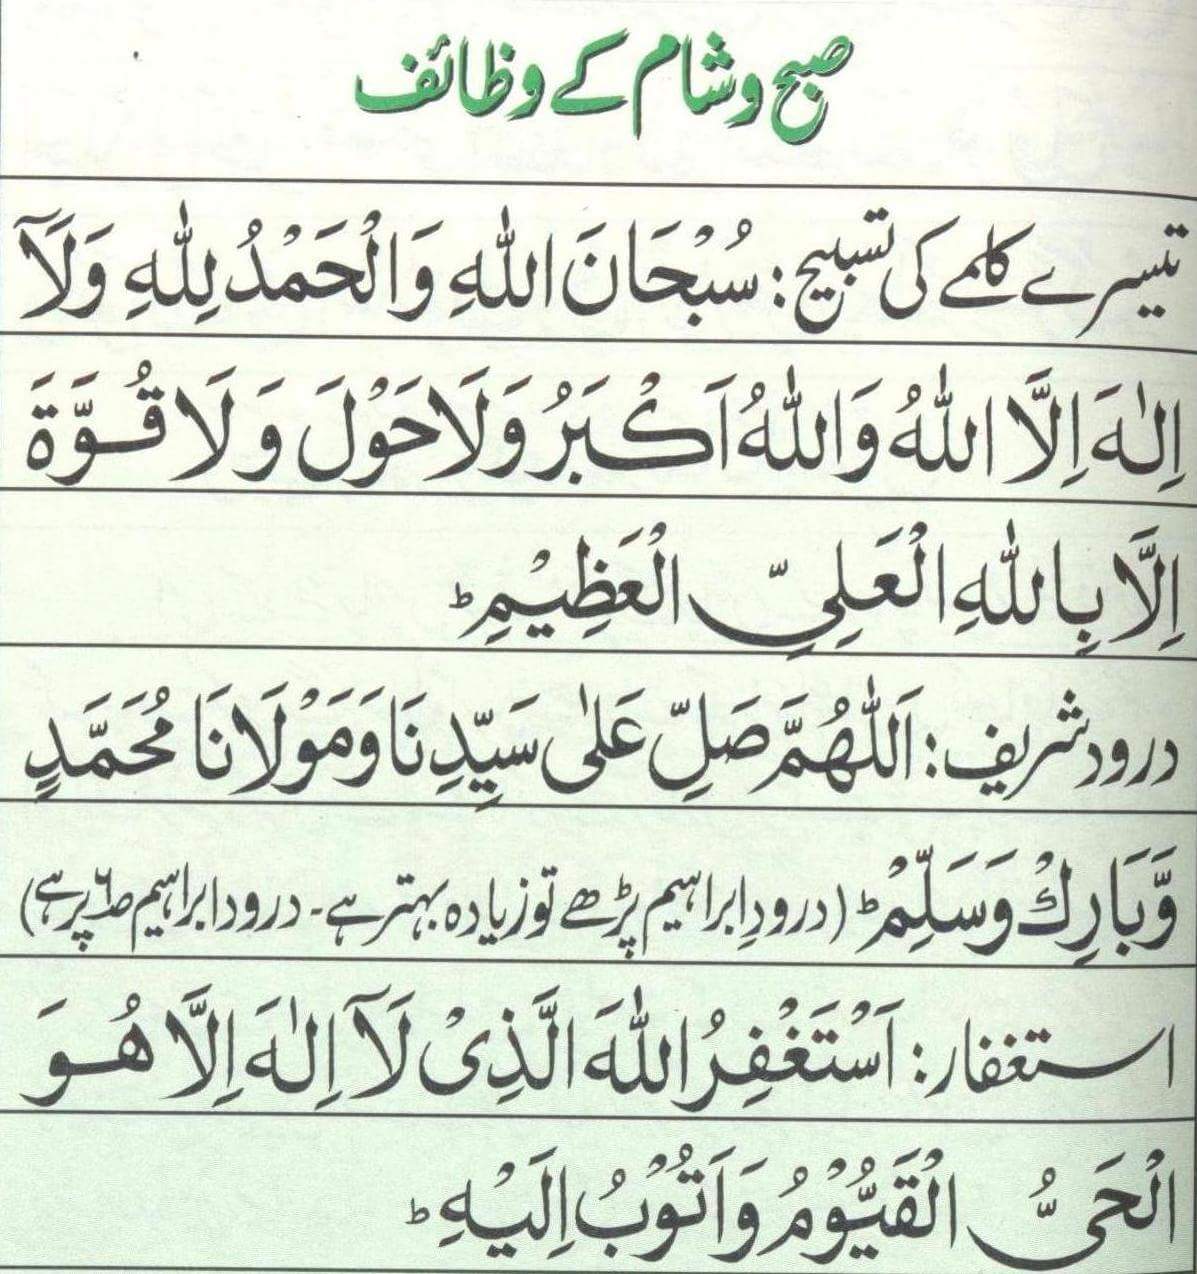 صبح و شام کے وظائف
تیسرے کلمے کی تسبیح: سُبْحَانَ اللّٰهِ وَالْحَمْدُ لِلّٰهِ وَلَآ
اِلٰهَ اِلَّا اللّٰهُ وَاللّٰهُ اَكْبَرُ وَلَا حَوْلَ وَلَا قُوَّةَ
اِلَّا بِاللّٰهِ الْعَلِیِّ الْعَظِیْمِ ؕ
درود شریف: اَللّٰهُمَّ صَلِّ عَلٰی سَیِّدِنَا وَمَوْلَانَا مُحَمَّدٍ
وَّبَارِكْ وَسَلِّمْ ؕ (درودِ ابراہیم پڑھے تو زیادہ بہتر ہے۔ درود ابراہیم صـ۶ پر ہے)
استغفار: اَسْتَغْفِرُ اللّٰهَ الَّذِیْ لَآ اِلٰهَ اِلَّا هُوَ
الْحَیُّ الْقَیُّوْمُ وَاَتُوْبُ اِلَیْهِ ؕ